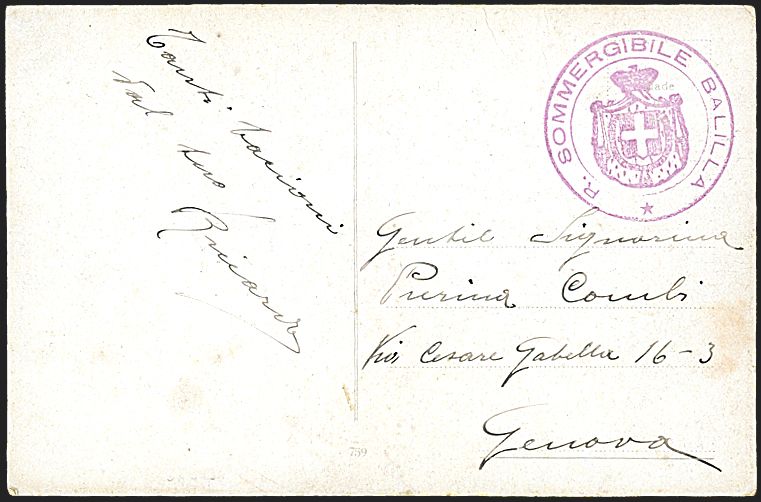 Tanti bacioni
dal tuo
Riccardo
R. SOMMERGIBILE BALILLA
Gentil Signorina
Pierina Combi
Via Cesare Gabella 16-3
Genova
759